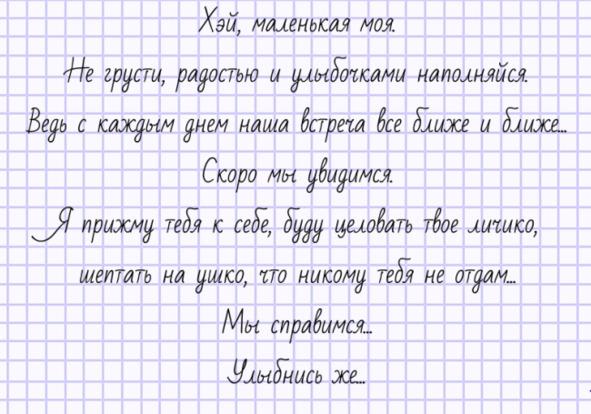 Хэй, маленькая моя.
Не грусти, радостью и улыбочками наполняйся.
Ведь с каждым днем наша встреча все ближе и ближе...
Скоро мы увидимся.
Я прижму тебя к себе, буду целовать твое личико,
шептать на ушко, что никому тебя не отдам...
Мы справимся...
Улыбнись же...